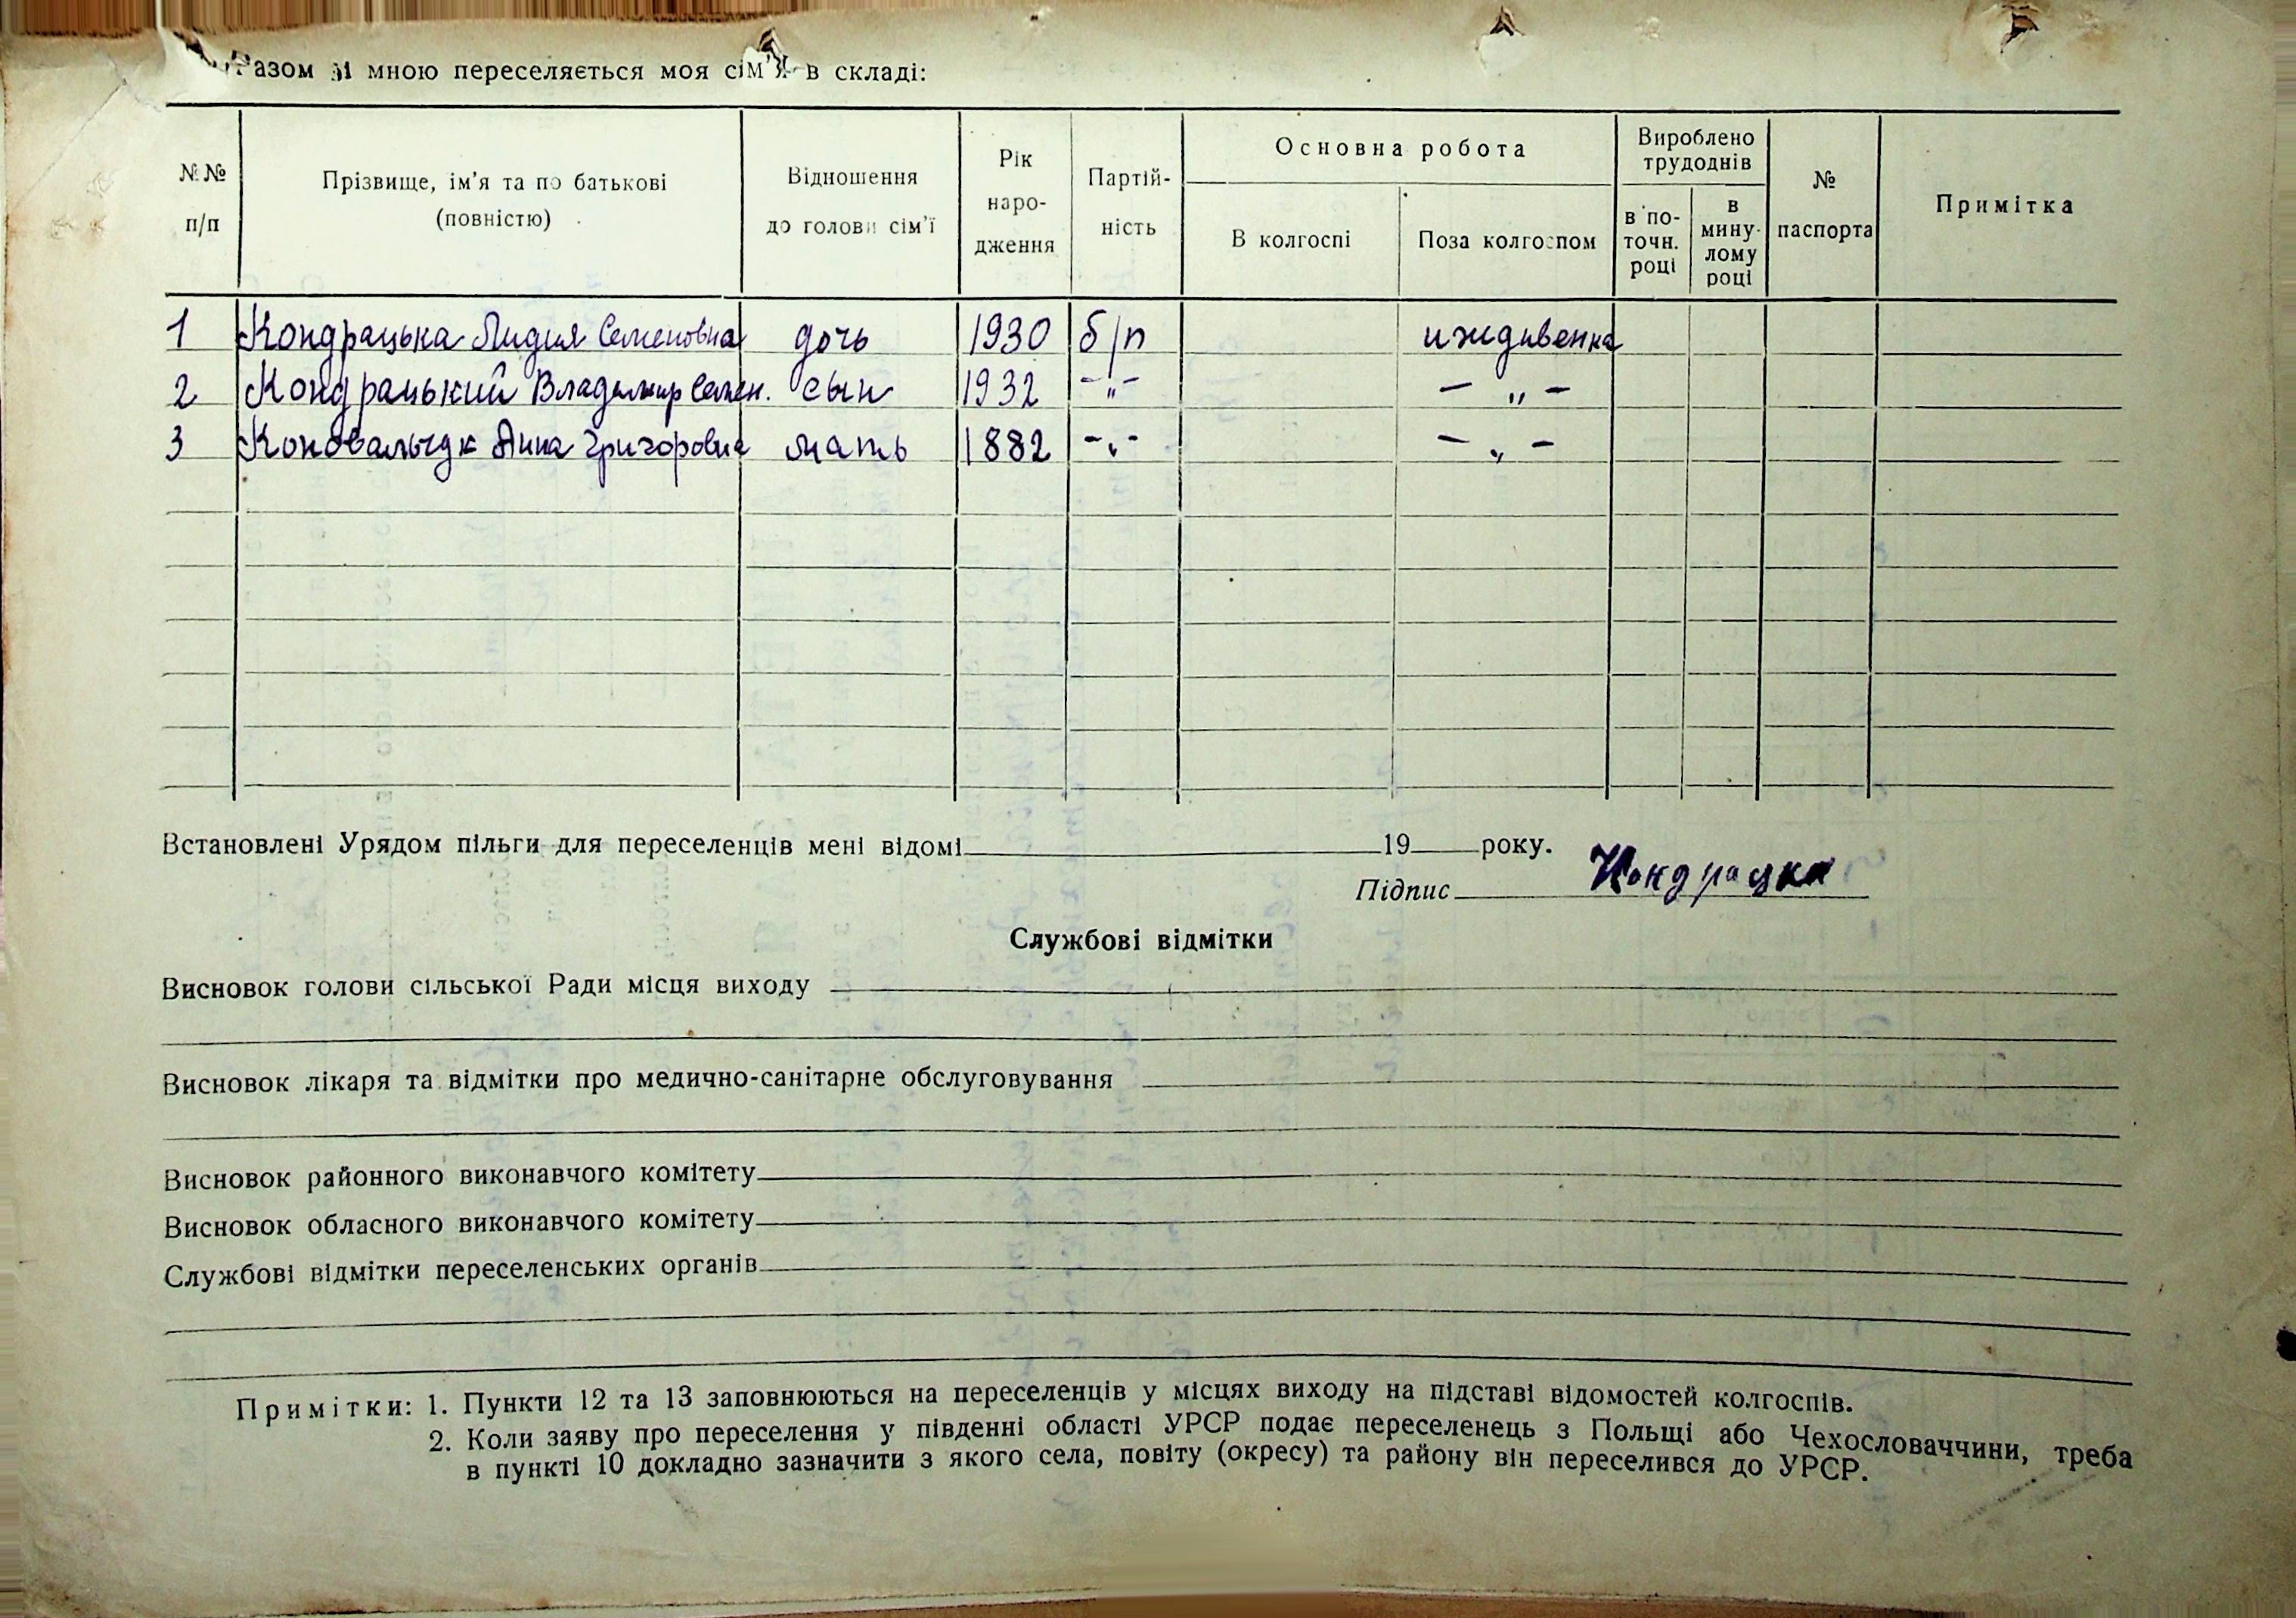 Разом зі мною переселяється моя сім'я в складі:
№№ п/п
Прізвище, ім'я та по батькові (повністю)
Відношення до голови сім'ї
Рік народження
Партійність
Основна робота
В колгоспі
Поза колгоспом
Вироблено трудоднів
в поточн. році
в минулому році
№ паспорта
Примітка
1 Кондрацька Лидия Семеновна дочь 1930 б/п иждивенка
2 Кондрацький Владимир Семен. сын 1932 -„- - „ -
3 Коновальчук Анна Григоровна мать 1882 -„- - „ -
Встановлені Урядом пільги для переселенців мені відомі 19 року.
Підпис Кондрацка
Службові відмітки
Висновок голови сільської Ради місця виходу
Висновок лікаря та відмітки про медично-санітарне обслуговування
Висновок районного виконавчого комітету
Висновок обласного виконавчого комітету
Службові відмітки переселенських органів
Примітки: 1. Пункти 12 та 13 заповнюються на переселенців у місцях виходу на підставі відомостей колгоспів.
2. Коли заяву про переселення у південні області УРСР подає переселенець з Польщі або Чехословаччини, треба
в пункті 10 докладно зазначити з якого села, повіту (окресу) та району він переселився до УРСР.